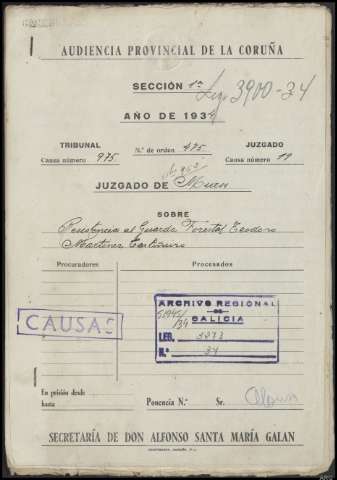 AUDIENCIA PROVINCIAL DE LA CORUÑA
SECCIÓN 1ª
Leg. 3900-34
AÑO DE 1934
TRIBUNAL
Causa número 975
N.º de orden 475
JUZGADO
Causa número 11
JUZGADO DE Muros
SOBRE
Resistencia al Guarda Forestal Teodoro
Martinez
Procuradores
Procesados
CAUSAS
ARCHIVO REGIONAL
DE
GALICIA
LEG. 3373
N.º 34
En prisión desde
hasta
Ponencia N.º
Sr.
SECRETARÍA DE DON ALFONSO SANTA MARÍA GALAN